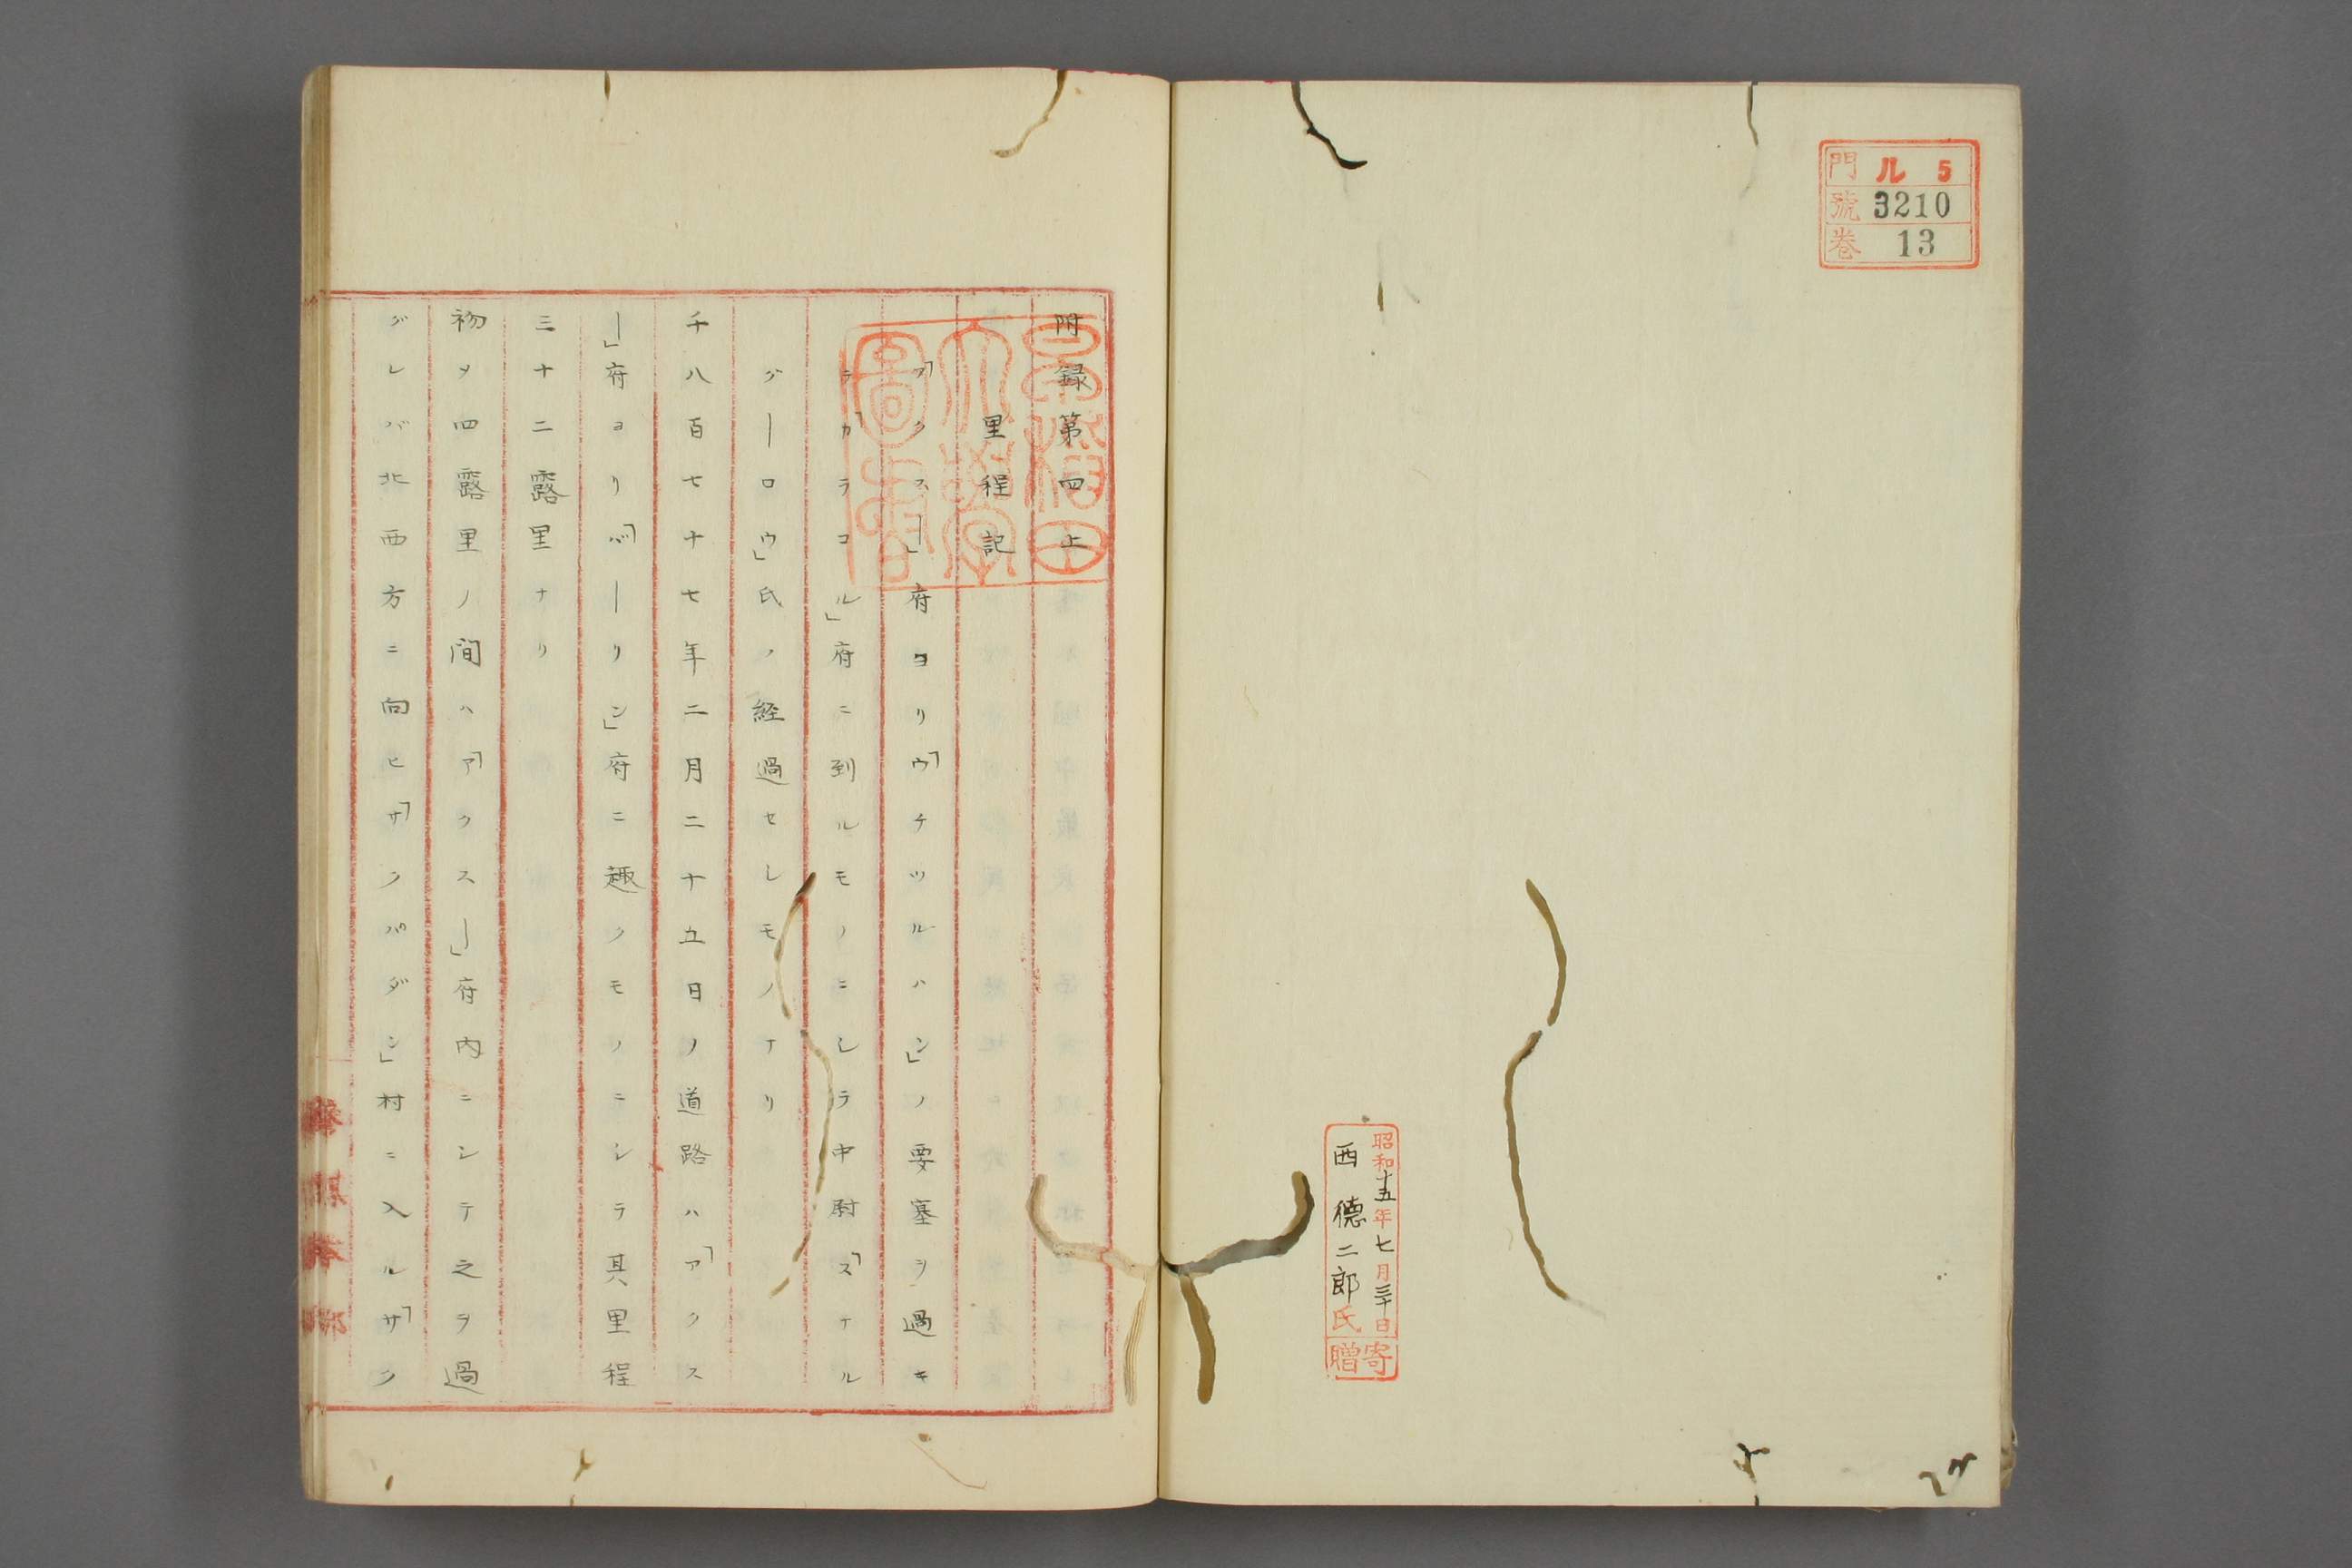 門 ル 5
號 3210
巻 13
昭和十五年七月三十日
西德二郎氏
寄贈
早稲田
大學
圖書
附録第四上
里程記
「アクスー」府ヨリ「ウチツルハン」ノ要塞ヲ過キ
テ「カラコル」府ニ到ルモノニシテ中尉「スナル
グーロウ」氏ノ経過セシモノナリ
千八百七十七年二月二十五日ノ道路ハ「アクス
ー」府ヨリ「バーリン」府ニ趣クモノニシテ其里程
三十二露里ナリ
初メ四露里ノ間ハ「アクスー」府内ニシテ之ヲ過
グレバ北西方ニ向ヒ「サクバダン」村ニ入ル「サク